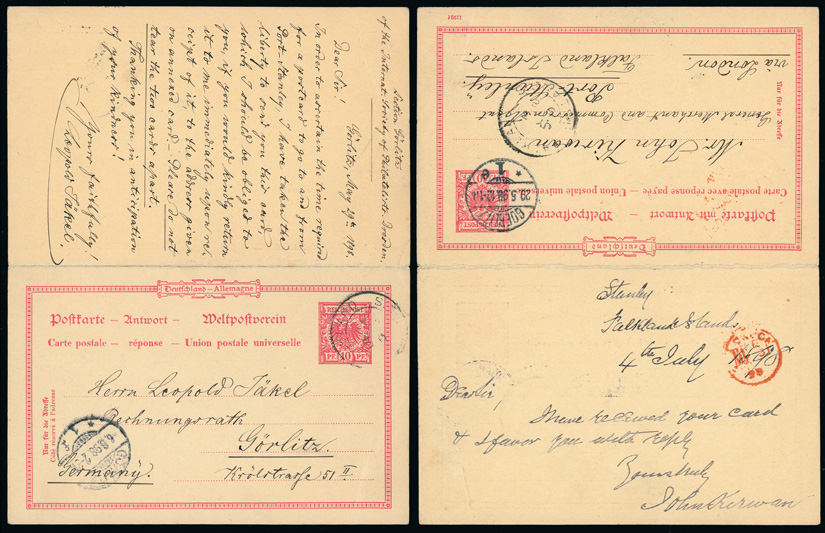 Section Görlitz
of the Internat. Society of Philatelists, Dresden.
Görlitz, May 29th 1898.
Dear Sir!
In order to ascertain the time required
for a postcard to go to and from
Port-Stanley I have taken the
liberty to send you this card,
which I should be obliged to
you, if you would kindly return
it to me immediately upon re-
ceipt of it, to the address given
on annexed card. Please do not
tear the two cards apart.
Thanking you in anticipation
of your kindness!
I am
Yours faithfully!
Leopold Täkel.
Deutschland – Allemagne
Postkarte – Antwort – Weltpostverein
Carte postale – réponse – Union postale universelle
REICHSPOST
PF. 10 PF.
Herrn Leopold Täkel
Rechnungsrath
Görlitz.
Krölstrasse 51 II
Germany.
Nur für die Adresse
Côté réservé à l'adresse
6.8.98
Deutschland
Postkarte mit Antwort – Weltpostverein
Carte postale avec réponse payée – Union postale universelle
REICHSPOST
GOERLITZ
29.5.98.12-1N
1 c
Mr. John Kirwan
General Merchant and Commission Agent
Port Stanley.
Falkland Islands.
via London.
Nur für die Adresse
Stanley
Falkland Islands
4th July 1898
98
Dear Sir,
I have received your card
& I favor you with reply
Yours truly
John Kirwan